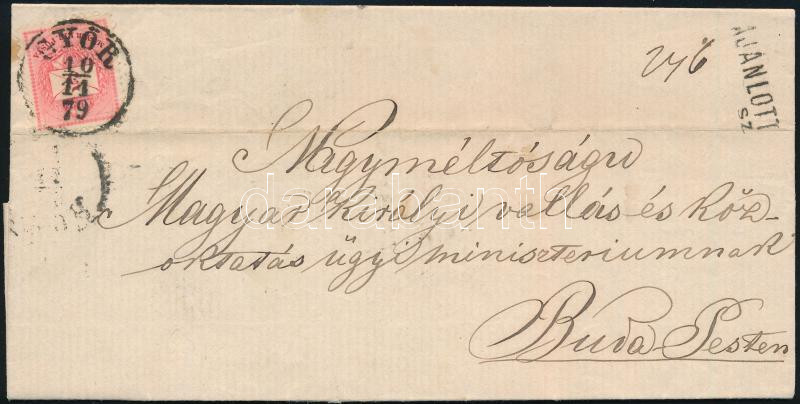 GYŐR
10
11
79
AJÁNLOTT
SZ
Nagyméltóságu
Magyar Királyi vallás és köz-
oktatás ügyi ministeriumnak
Buda-Pesten
darabanth